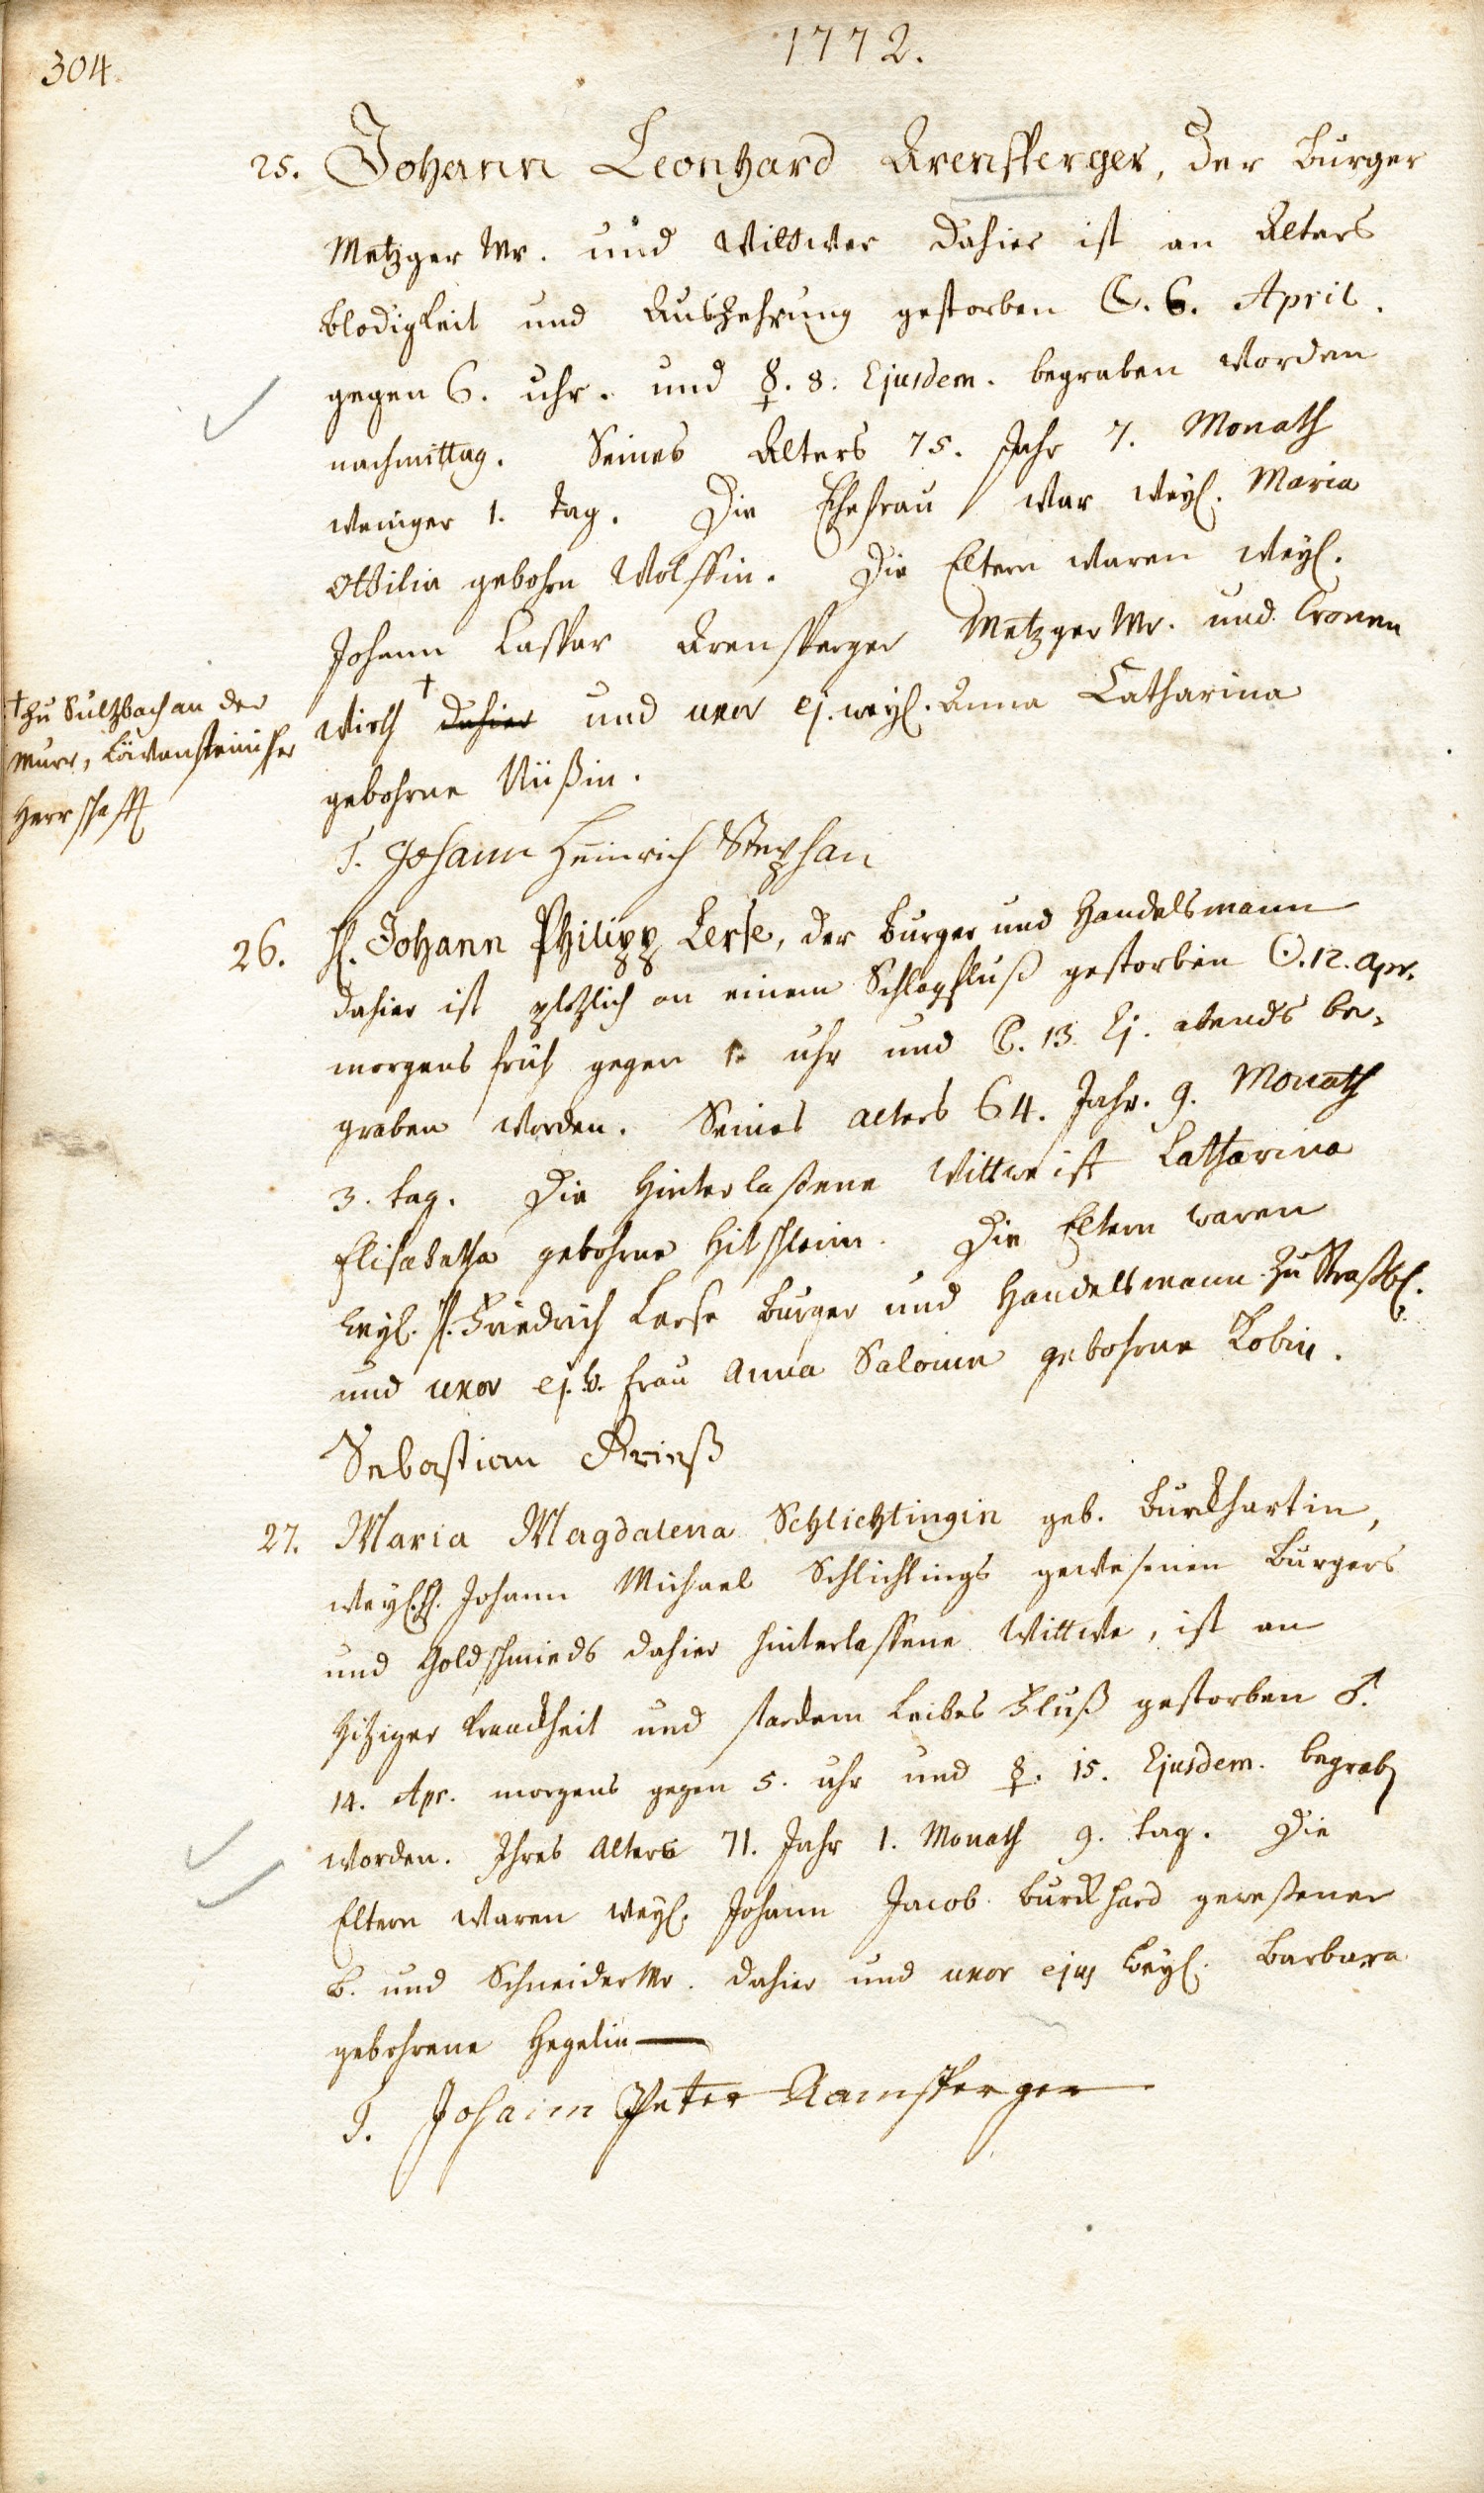 304.
1772.
25. Johann Leonhard Arensperger, der Burger
Metzger Mr. und Wittwer dahier ist an Alters
blödigkeit und Auszehrung gestorben ☾. 6. April.
gegen 6. uhr. und ☿. 8. Ejusdem. begraben worden
nachmittag. Seines Alters 75. Jahr 7. Monath
weniger 1. tag. Die Ehefrau war weyl. Maria
Ottilia gebohrn Wolffin. Die Eltern waren weyl.
Johann Caspar Arensperger Metzger Mr. und Cronen
wirth † dahier und uxor ej. weyl. Anna Catharina
gebohrne Nüßin.
† Zu Sultzbach an der
Murr, Löwensteinischer
Herrschafft
T. Johann Heinrich Stephan
26. H. Johann Philipp Lerse, der Burger und Handelsmann
dahier ist plözlich an einem Schlagfluß gestorben ☉. 12. Apr.
morgens früh gegen 1. uhr und ☾. 13. Ej. abends be-
graben worden. Seines alters 64. Jahr. 9. Monath
3. tag. Die Hinterlaßene Wittwe ist Catharina
Elisabetha gebohrne Hitschlerin. Die Eltern waren
weyl. H. Friedrich Lerse Burger und Handelsmann zu Straßb.
und uxor ej. w. Frau Anna Salome gebohrne Kobin.
Sebastian Prieß
27. Maria Magdalena Schlichtingin geb. Burckhartin,
weyl. H. Johann Michael Schlichtings gewesenen Burgers
und Goldschmieds dahier hinterlassene Wittwe, ist an
hitziger Kranckheit und starckem Leibes Fluß gestorben ♂.
14. Apr. morgens gegen 5. uhr und ☿. 15. Ejusdem. begraben
worden. Ihres Alters 71. Jahr 1. Monath 9. tag. Die
Eltern waren weyl. Johann Jacob Burckhard gewesener
B. und Schneider Mr. dahier und uxor ejus weyl. Barbara
gebohrene Hegelin
T. Johann Peter Ramsperger